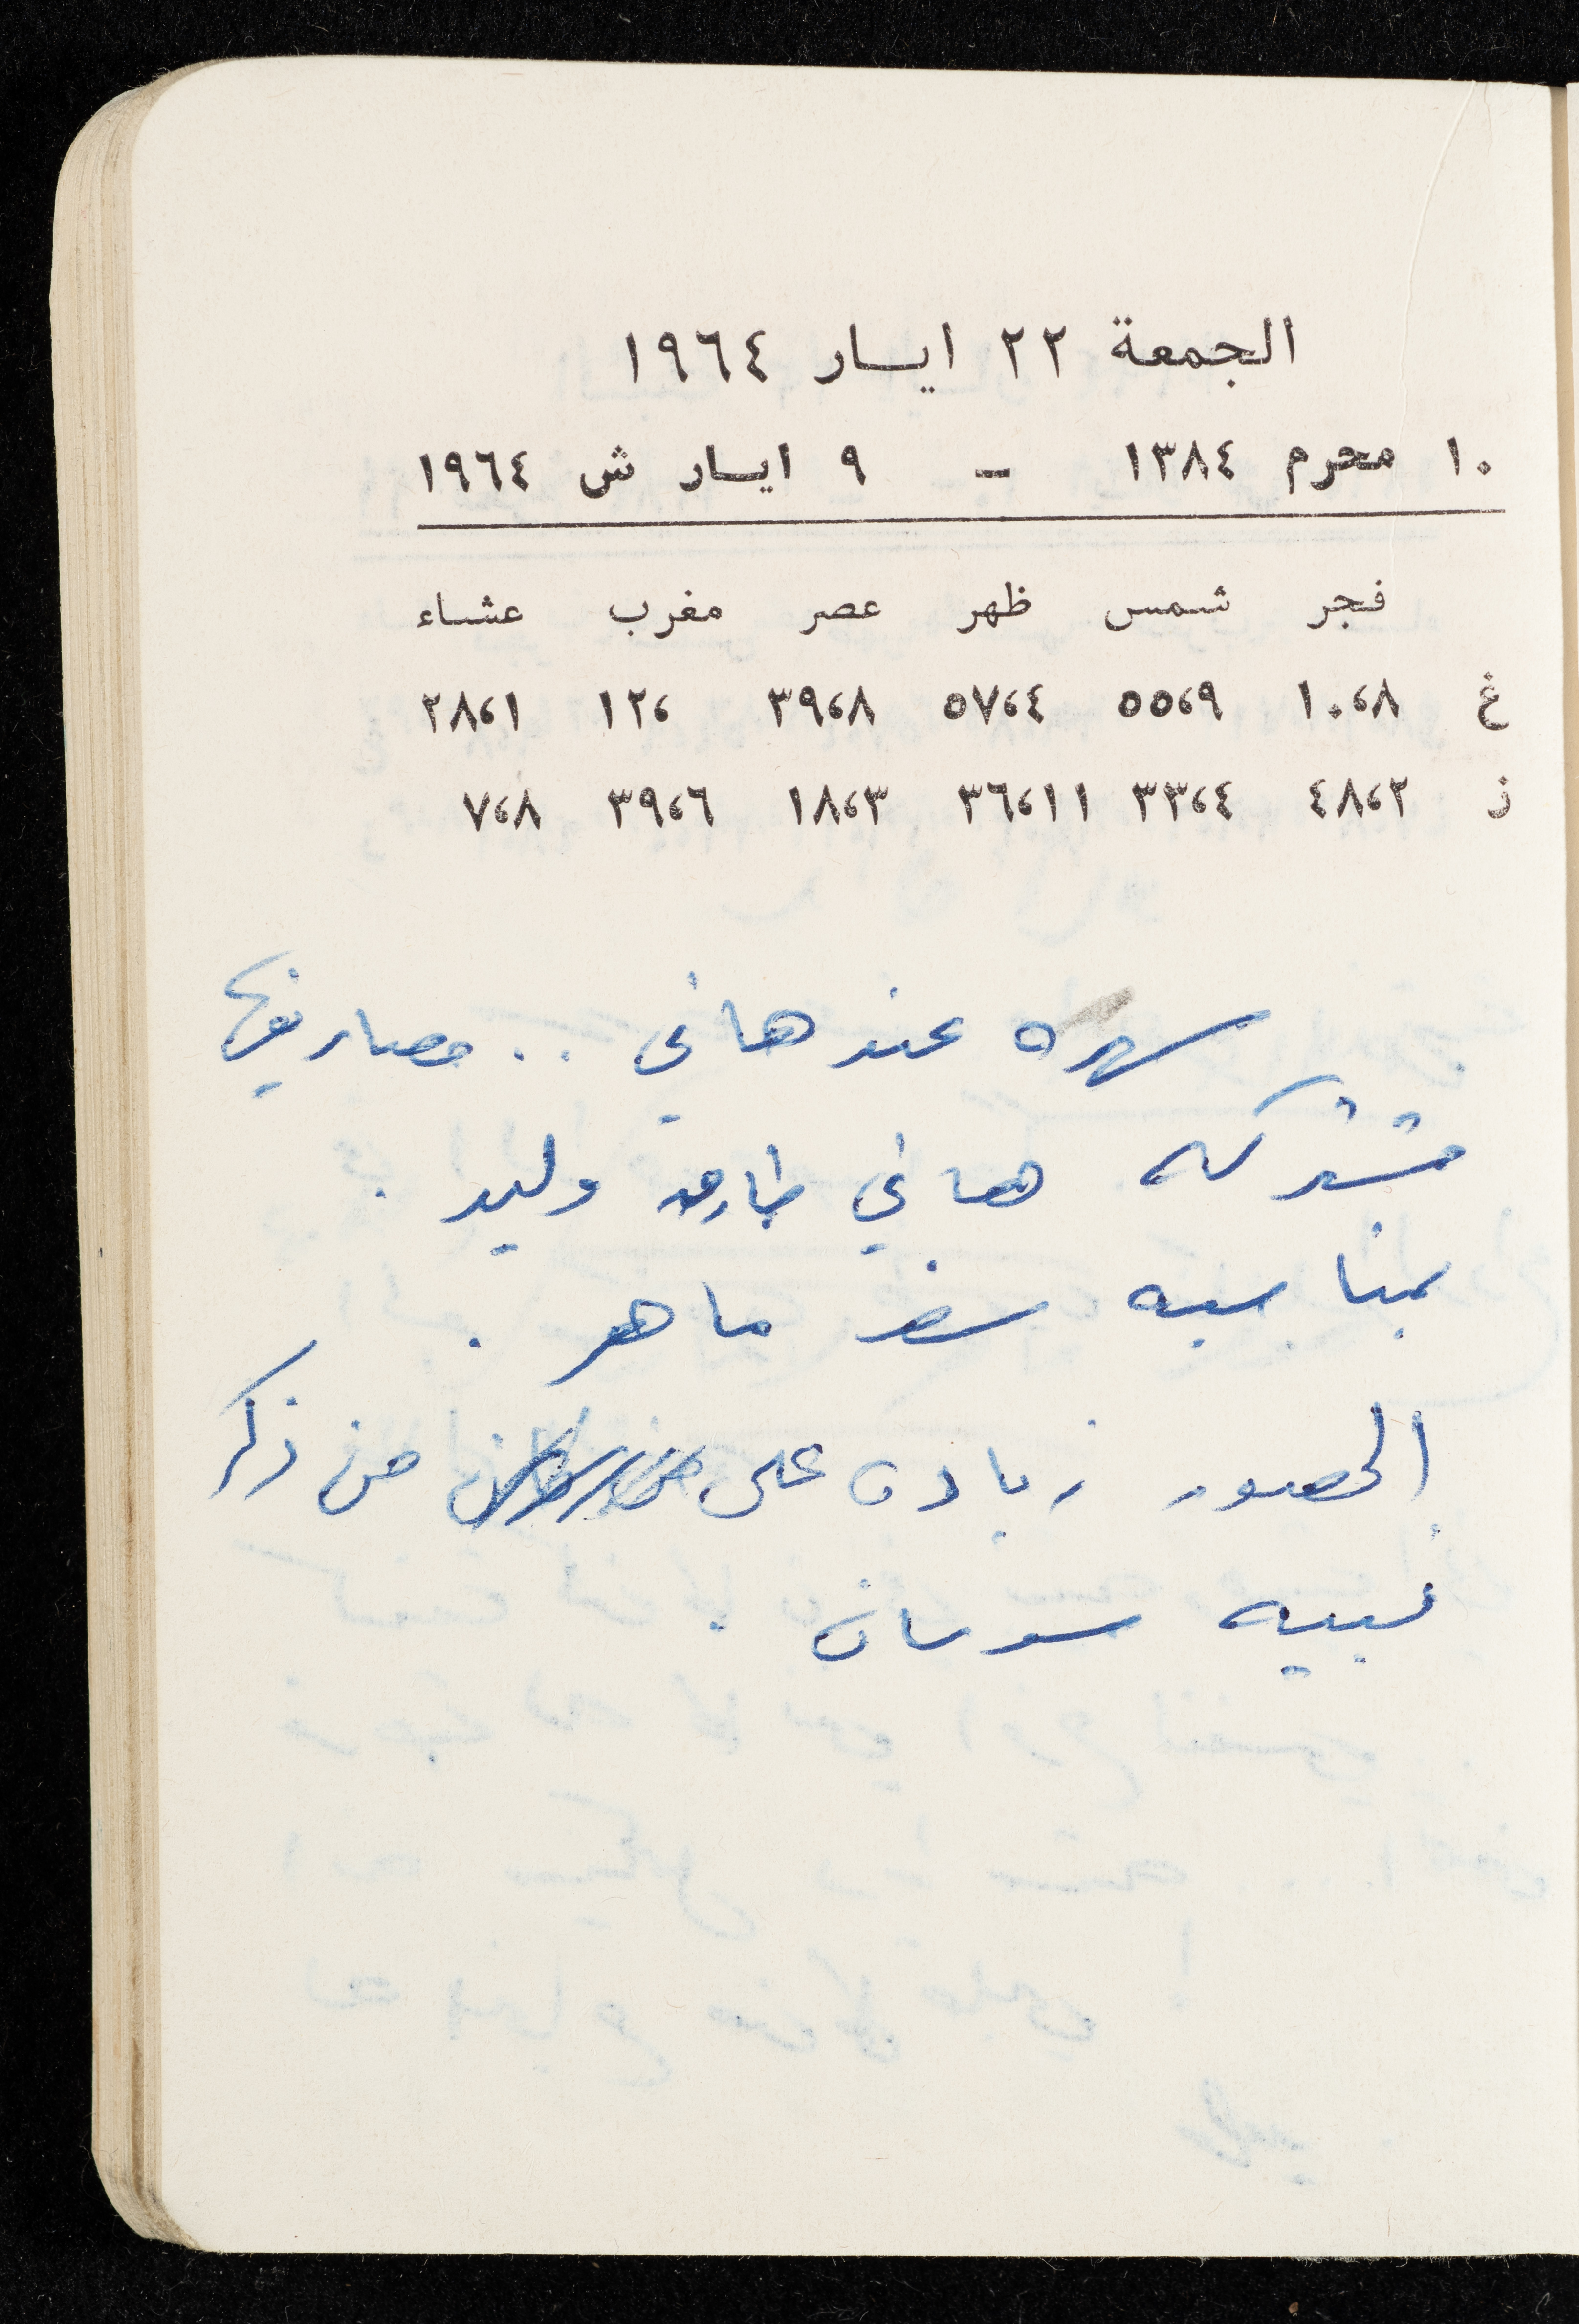 الجمعة ٢٢ ايسار ١٩٦٤
١٠ محرم ١٣٨٤ - ٩ ايسار ش ١٩٦٤
فجر شمس ظهر عصر مغرب عشاء
غ ١٠،٨ ٥٥،٩ ٥٧،٤ ٣٩،٨ ١٢، ٢٨،١
ز ٤٨،٢ ٣٣،٤ ٣٦،١١ ١٨،٣ ٣٩،٦ ٧،٨
سهره عند هاني .. مصاريفها
مشتركه هاني طارق وليد .
بمناسبه سفر ماهر .
الحضور زيادة على من ذكر
نبيه سوسان